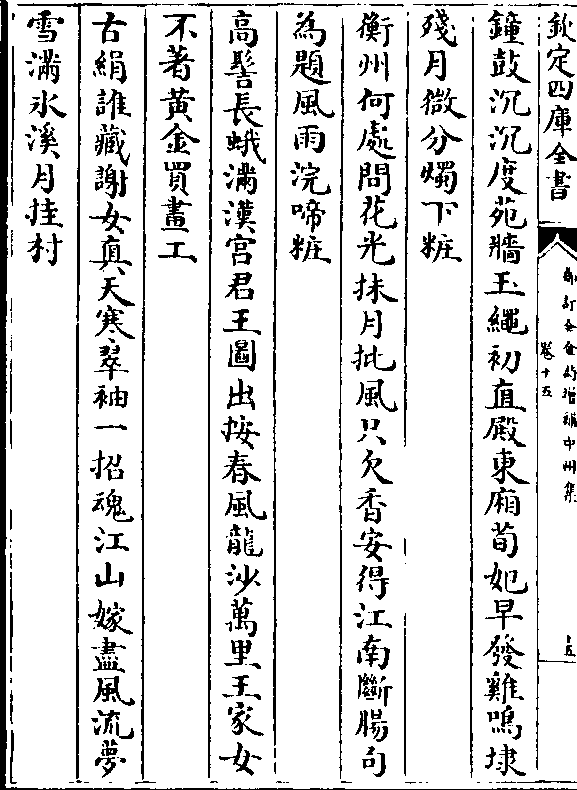 欽定四庫全書
御訂全金詩增補中州集
卷十五
五
鐘鼓沉沉度苑牆玉繩初直殿東廂荀妃早發雞鳴埭
殘月微分燭下粧
衡州何處問花光抹月批風只欠香安得江南斷腸句
為題風雨浣啼粧
高髻長蛾滿漢宮君王圖出按春風龍沙萬里王家女
不著黃金買畫工
古絹誰藏謝女真天寒翠袖一招魂江山嫁盡風流夢
雪滿氷溪月挂村